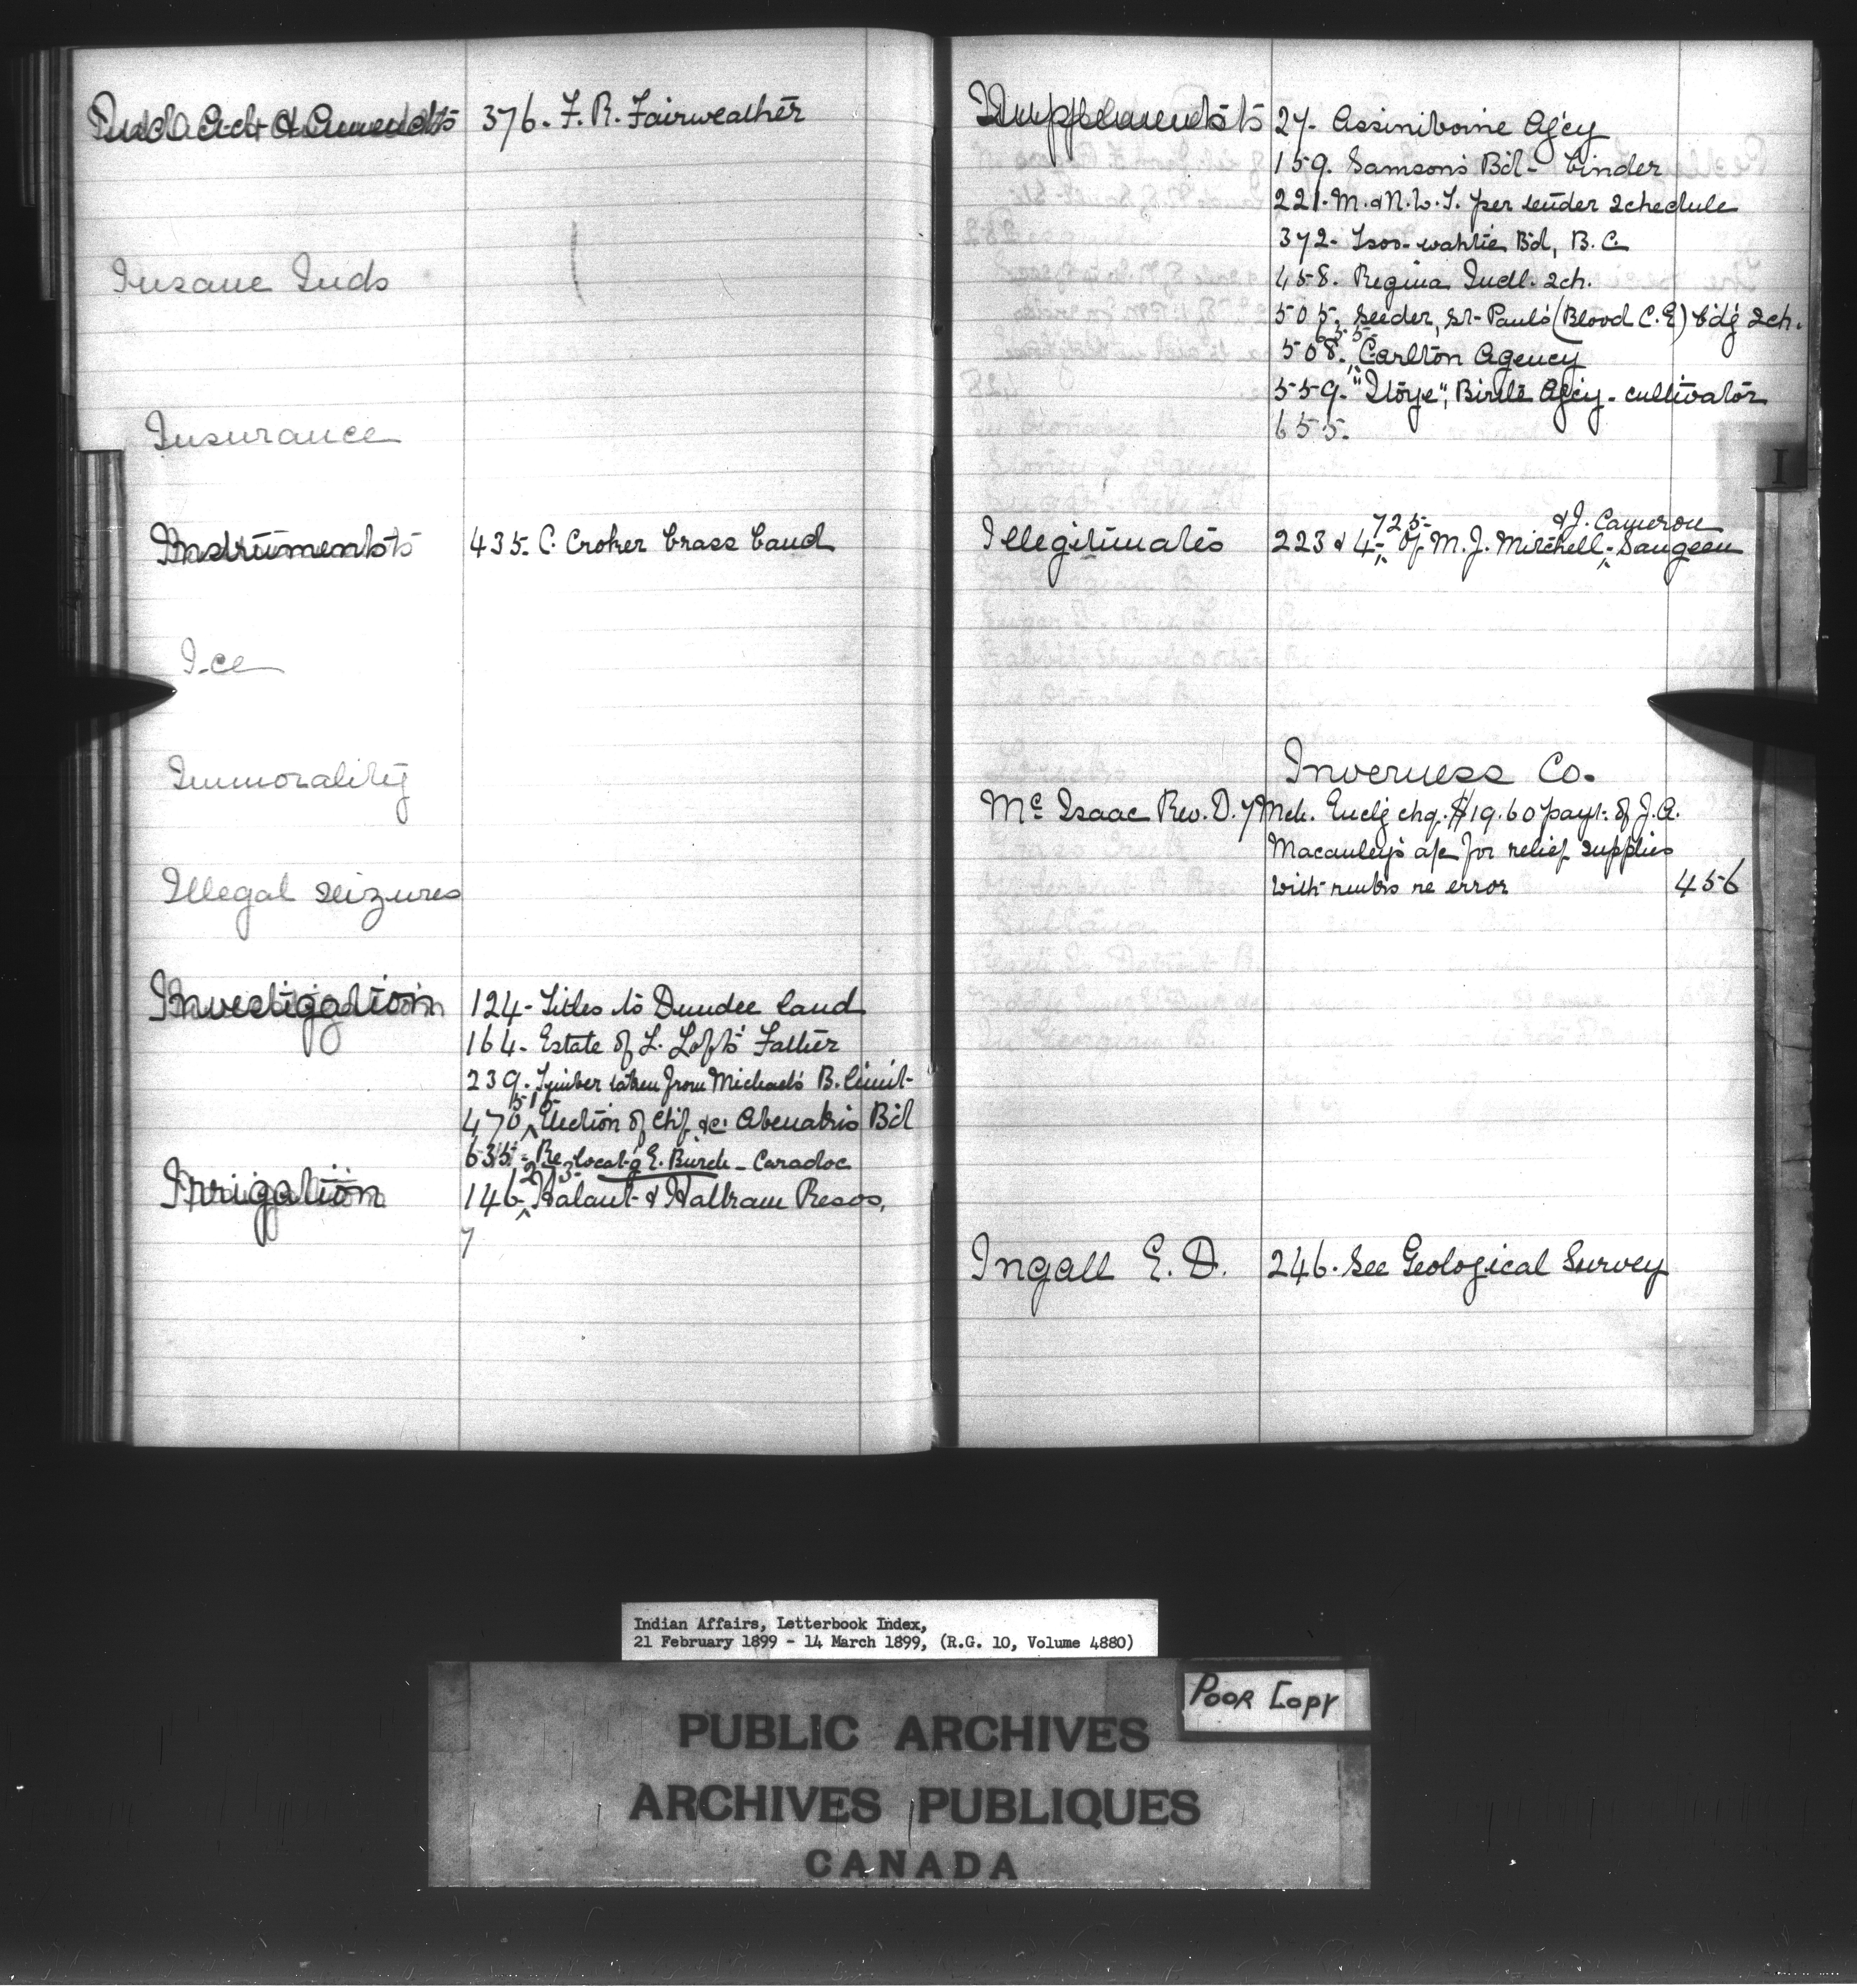 Indl. Act & Amendts 376. F. R. Fairweather
Insane Inds
Insurance
Instruments 435. C. Croker brass band
Ice
Immorality
Illegal seizures
Investigation 124. Titles to Dundee land
164. Estate of L. Loft's Father
239. Timber taken from Michael's B. limit
515
470 ^ Election of Chf. &c. Abenakis Bd
635. Re locatg E. Burch - Caradoc
Irrigation 146 ^ Halaut & Haltram Resos.
7
Implements 27. Assiniboine Agcy
159. Samson's Bd - binder
221. M. & N. W. T. per tender schedule
372. Tsoo-wahlie Bd, B. C.
458. Regina Indl. sch.
505. Seeder, St. Paul's (Blood C.E) bdg sch.
655
508. ^ Carlton Agency
559. "Itoye", Birtle Agcy - cultivator
655.
725 & J. Cameron
Illegitimates 223 & 4 ^ of M. J. Mitchell ^ Saugeen
Inverness Co.
Mc Isaac Rev. D. 7 Mch. Enclg chq. $19.60 payt. of J. A.
Macauley's a/c for relief supplies
with remks re error 456
Ingall E. D. 246. See Geological Survey
I
Indian Affairs, Letterbook Index,
21 February 1899 - 14 March 1899, (R.G. 10, Volume 4880)
POOR COPY
PUBLIC ARCHIVES
ARCHIVES PUBLIQUES
CANADA